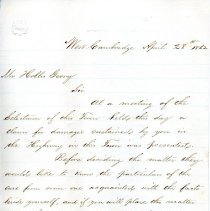 West Cambridge April 28th 1862
Mr Hollis Gerry
Sir
At a meeting of the
Selectmen of this Town held this day a
claim for damages sustained by you in
the Highway in this Town was presented.
Before deciding the matter they
would like to know the particulars of the
case from some one acquainted with the facts
beside yourself, and if you will place the matter